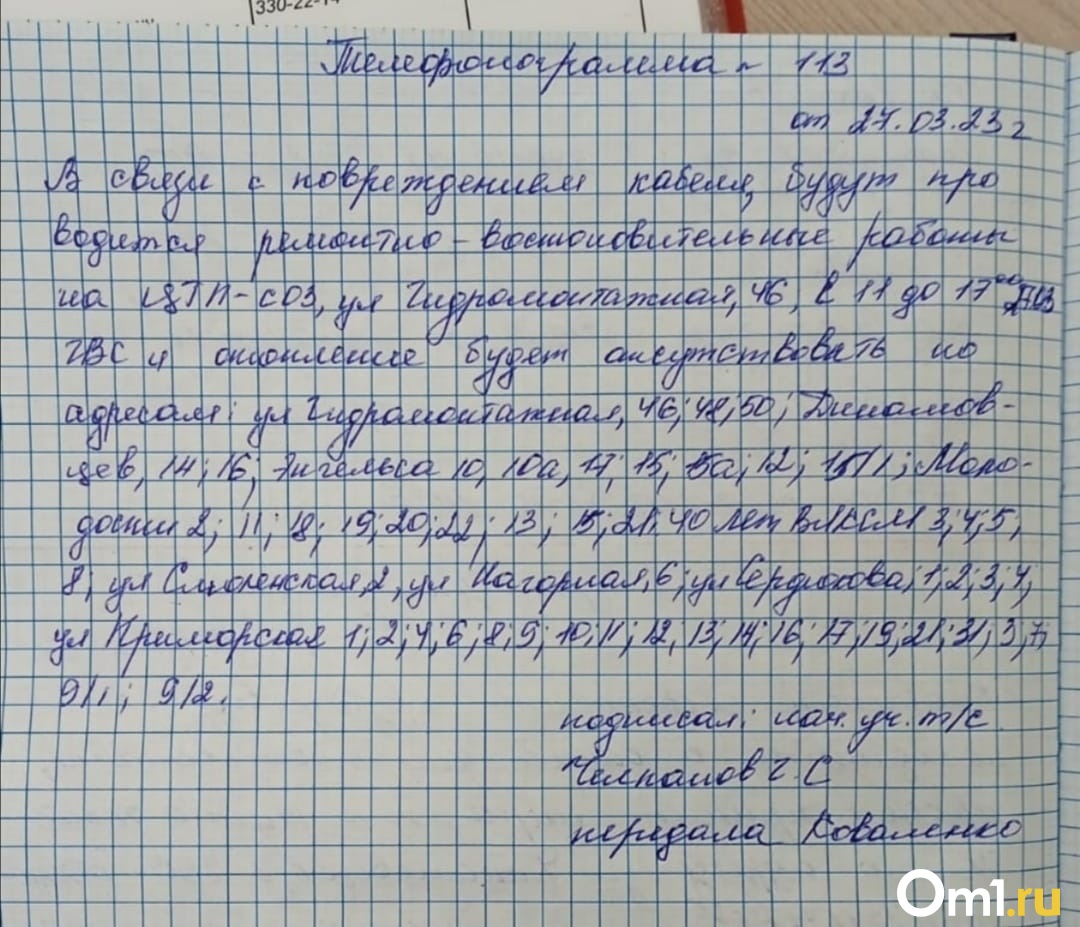 330-22-14
Телефонограмма N 113
от 27.03.23 г
В связи с повреждением кабеля, будут про
водится ремонтно-востоновительные работы
на ЦТП-СОЗ, ул Гидромонтажная, 46, с 11 до 17⁰⁰ 27.03
ГВС и отопление будет отсутствовать по
адресам: ул Гидромонтажная, 46; 48; 50; Динамов-
цев, 14; 16; Энгельса 10, 10а, 17; 15; 5а; 12; 15/1; Моло-
дости 2; 11; 18; 19; 20; 22; 13; 15; 21. 40 лет ВЛКСМ 3; 4; 5;
8; ул Смоленская, 2, ул Нагорная, 6; ул Сердюкова; 1; 2; 3; 4;
ул Приморская 1; 2; 4; 6; 8; 9; 10; 11; 12, 13; 14; 16; 17; 19; 21; 31; 3; 7;
9/1; 9/2.
подписал: нач. уч. т/с
Челпанов Г.С
передала Коваленко
Om1.ru